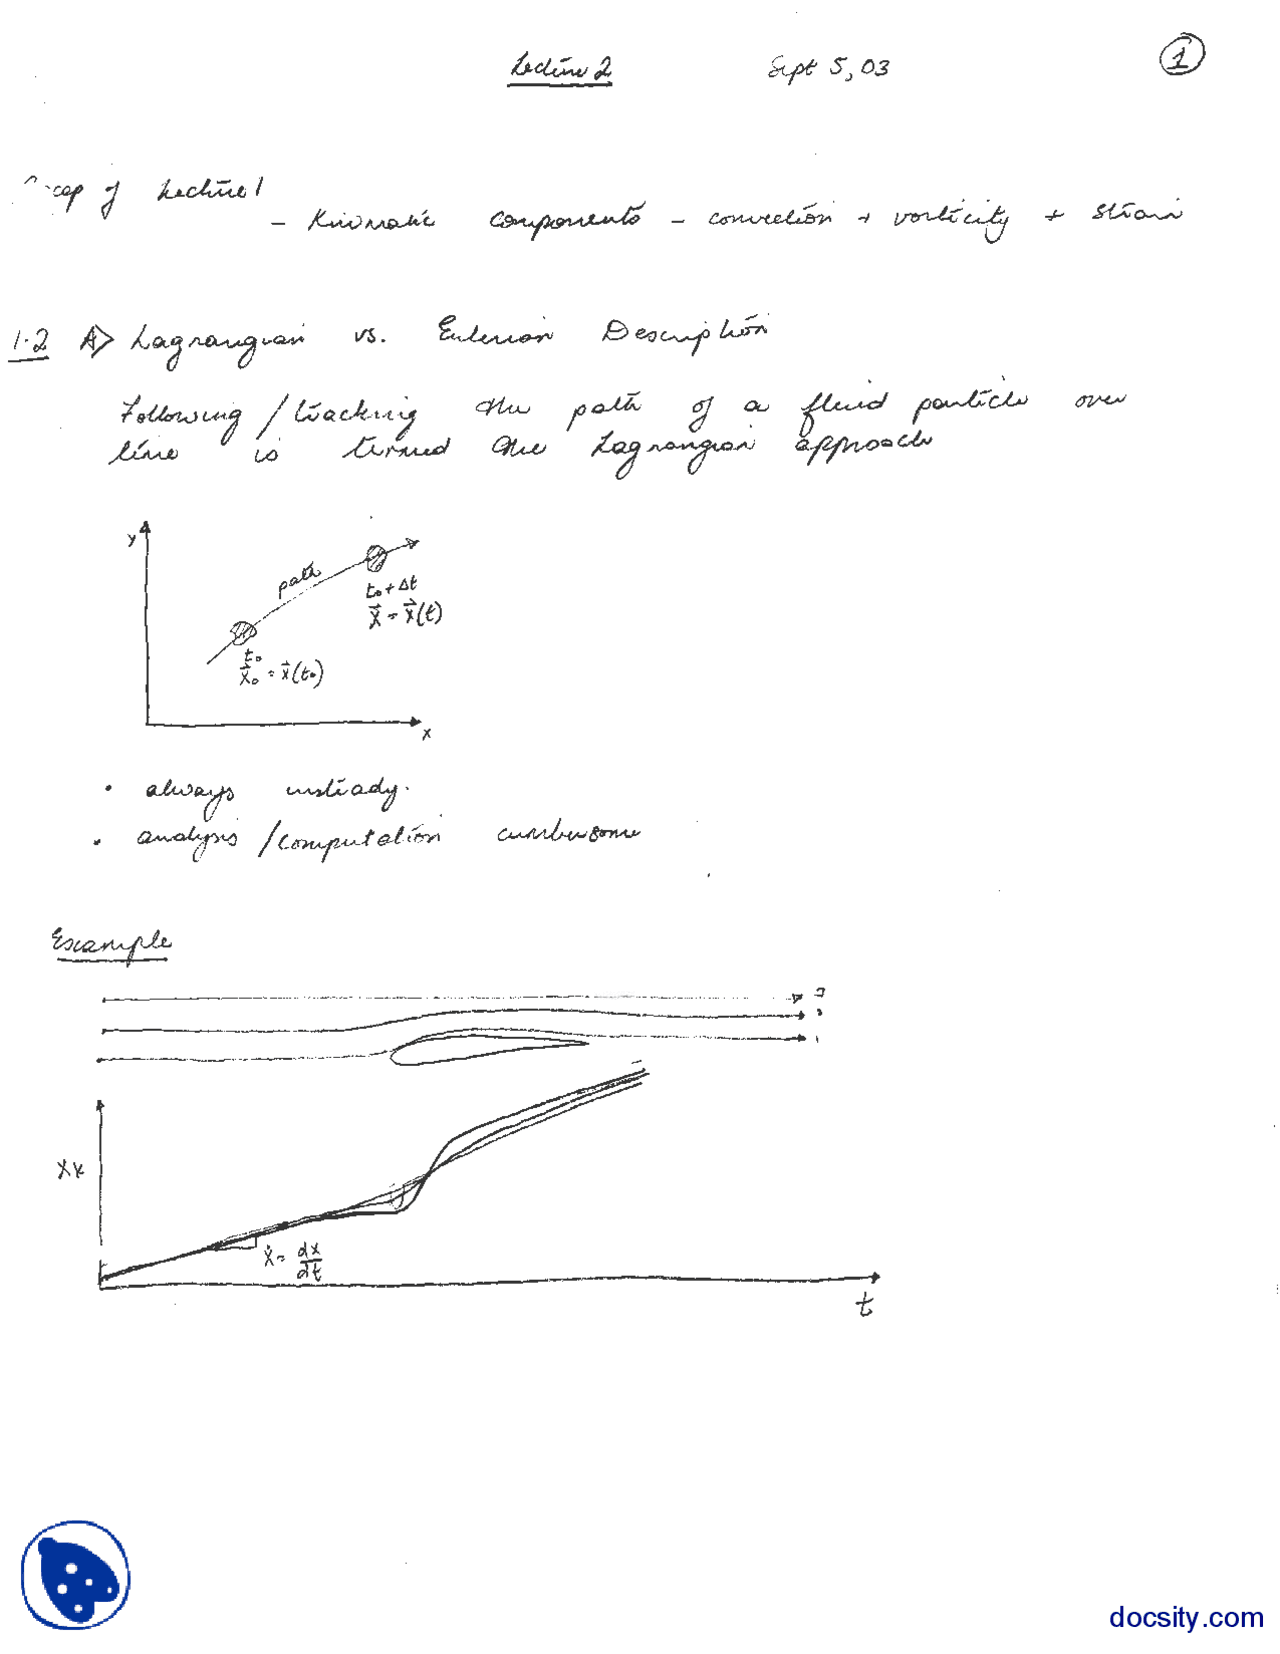 Lecture 2 Sept 5, 03 1
of Lecture 1
- Kinematic components - convection + vorticity + strain
1.2 A> Lagrangian vs. Eulerian Description
Following / tracking the path of a fluid particle over
time is termed the Lagrangian approach
y
path
t₀ + Δt
x⃗ = x⃗(t)
t₀
x⃗₀ = x⃗(t₀)
x
• always unsteady.
• analysis / computation cumbersome
Example
3
2
1
Xk
ẋ = dx/dt
t
docsity.com